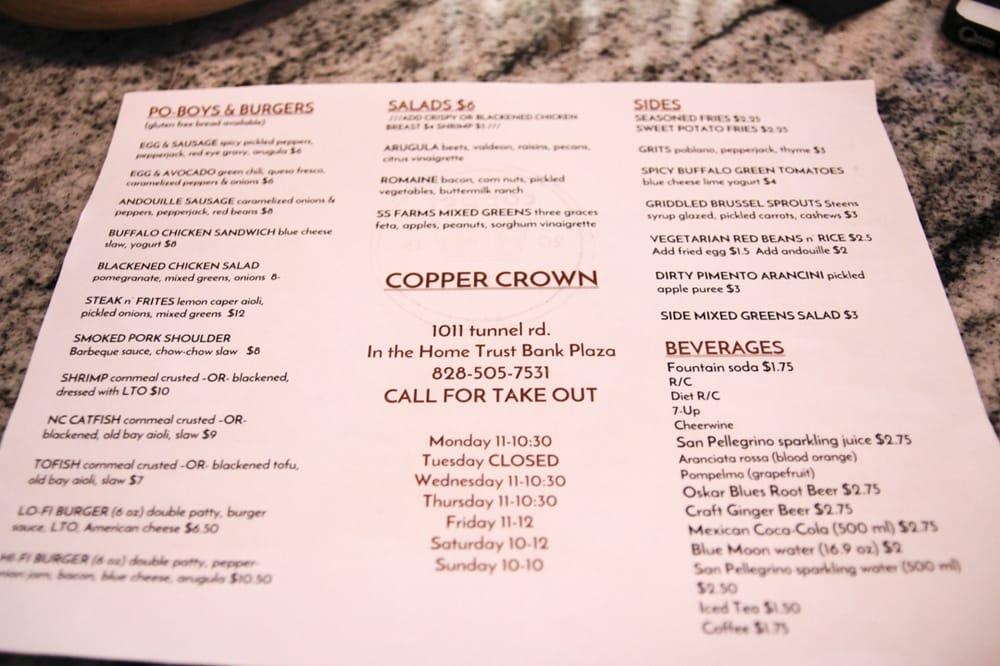 PO-BOYS & BURGERS
(gluten free bread available)
EGG & SAUSAGE spicy pickled peppers,
pepperjack, red eye gravy, arugula $6
EGG & AVOCADO green chili, queso fresco,
caramelized peppers & onions $6
ANDOUILLE SAUSAGE caramelized onions &
peppers, pepperjack, red beans $8
BUFFALO CHICKEN SANDWICH blue cheese
slaw, yogurt $8
BLACKENED CHICKEN SALAD
pomegranate, mixed greens, onions 8-
STEAK n' FRITES lemon caper aioli,
pickled onions, mixed greens $12
SMOKED PORK SHOULDER
Barbeque sauce, chow-chow slaw $8
SHRIMP cornmeal crusted -OR- blackened,
dressed with LTO $10
NC CATFISH cornmeal crusted -OR-
blackened, old bay aioli, slaw $9
TOFISH cornmeal crusted -OR- blackened tofu,
old bay aioli, slaw $7
LO-FI BURGER (6 oz) double patty, burger
sauce, LTO, American cheese $6.50
HI-FI BURGER (6 oz) double patty, pepper-
jam, bacon, blue cheese, arugula $10.50
SALADS $6
///ADD CRISPY OR BLACKENED CHICKEN
BREAST $4 SHRIMP $5 ///
ARUGULA beets, valdeon, raisins, pecans,
citrus vinaigrette
ROMAINE bacon, corn nuts, pickled
vegetables, buttermilk ranch
SS FARMS MIXED GREENS three graces
feta, apples, peanuts, sorghum vinaigrette
COPPER CROWN
1011 tunnel rd.
In the Home Trust Bank Plaza
828-505-7531
CALL FOR TAKE OUT
Monday 11-10:30
Tuesday CLOSED
Wednesday 11-10:30
Thursday 11-10:30
Friday 11-12
Saturday 10-12
Sunday 10-10
SIDES
SEASONED FRIES $2.25
SWEET POTATO FRIES $2.25
GRITS poblano, pepperjack, thyme $3
SPICY BUFFALO GREEN TOMATOES
blue cheese lime yogurt $4
GRIDDLED BRUSSEL SPROUTS Steens
syrup glazed, pickled carrots, cashews $3
VEGETARIAN RED BEANS n' RICE $2.5
Add fried egg $1.5 Add andouille $2
DIRTY PIMENTO ARANCINI pickled
apple puree $3
SIDE MIXED GREENS SALAD $3
BEVERAGES
Fountain soda $1.75
R/C
Diet R/C
7-Up
Cheerwine
San Pellegrino sparkling juice $2.75
Aranciata rossa (blood orange)
Pompelmo (grapefruit)
Oskar Blues Root Beer $2.75
Craft Ginger Beer $2.75
Mexican Coca-Cola (500 ml) $2.75
Blue Moon water (16.9 oz) $2
San Pellegrino sparkling water (500 ml)
$2.50
Iced Tea $1.50
Coffee $1.75